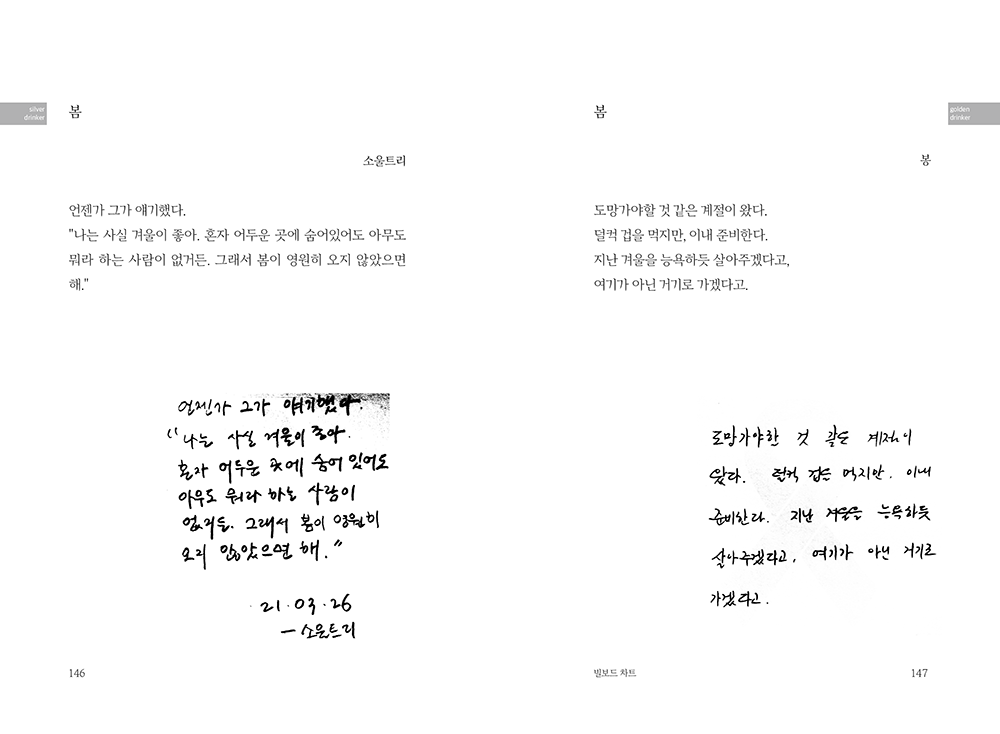 silver
drinker
봄
소울트리
언젠가 그가 얘기했다.
"나는 사실 겨울이 좋아. 혼자 어두운 곳에 숨어있어도 아무도
뭐라 하는 사람이 없거든. 그래서 봄이 영원히 오지 않았으면
해."
언젠가 그가 얘기했다.
"나는 사실 겨울이 좋아.
혼자 어두운 곳에 숨어 있어도
아무도 뭐라 하는 사람이
없거든. 그래서 봄이 영원히
오지 않았으면 해."
21.03.26
- 소울트리
146
golden
drinker
봄
봉
도망가야할 것 같은 계절이 왔다.
덜컥 겁을 먹지만, 이내 준비한다.
지난 겨울을 능욕하듯 살아주겠다고,
여기가 아닌 거기로 가겠다고.
도망가야할 것 같은 계절이
왔다. 덜컥 겁은 먹지만. 이내
준비한다. 지난 겨울을 능욕하듯
살아주겠다고, 여기가 아닌 거기로
가겠다고.
빌보드 차트
147